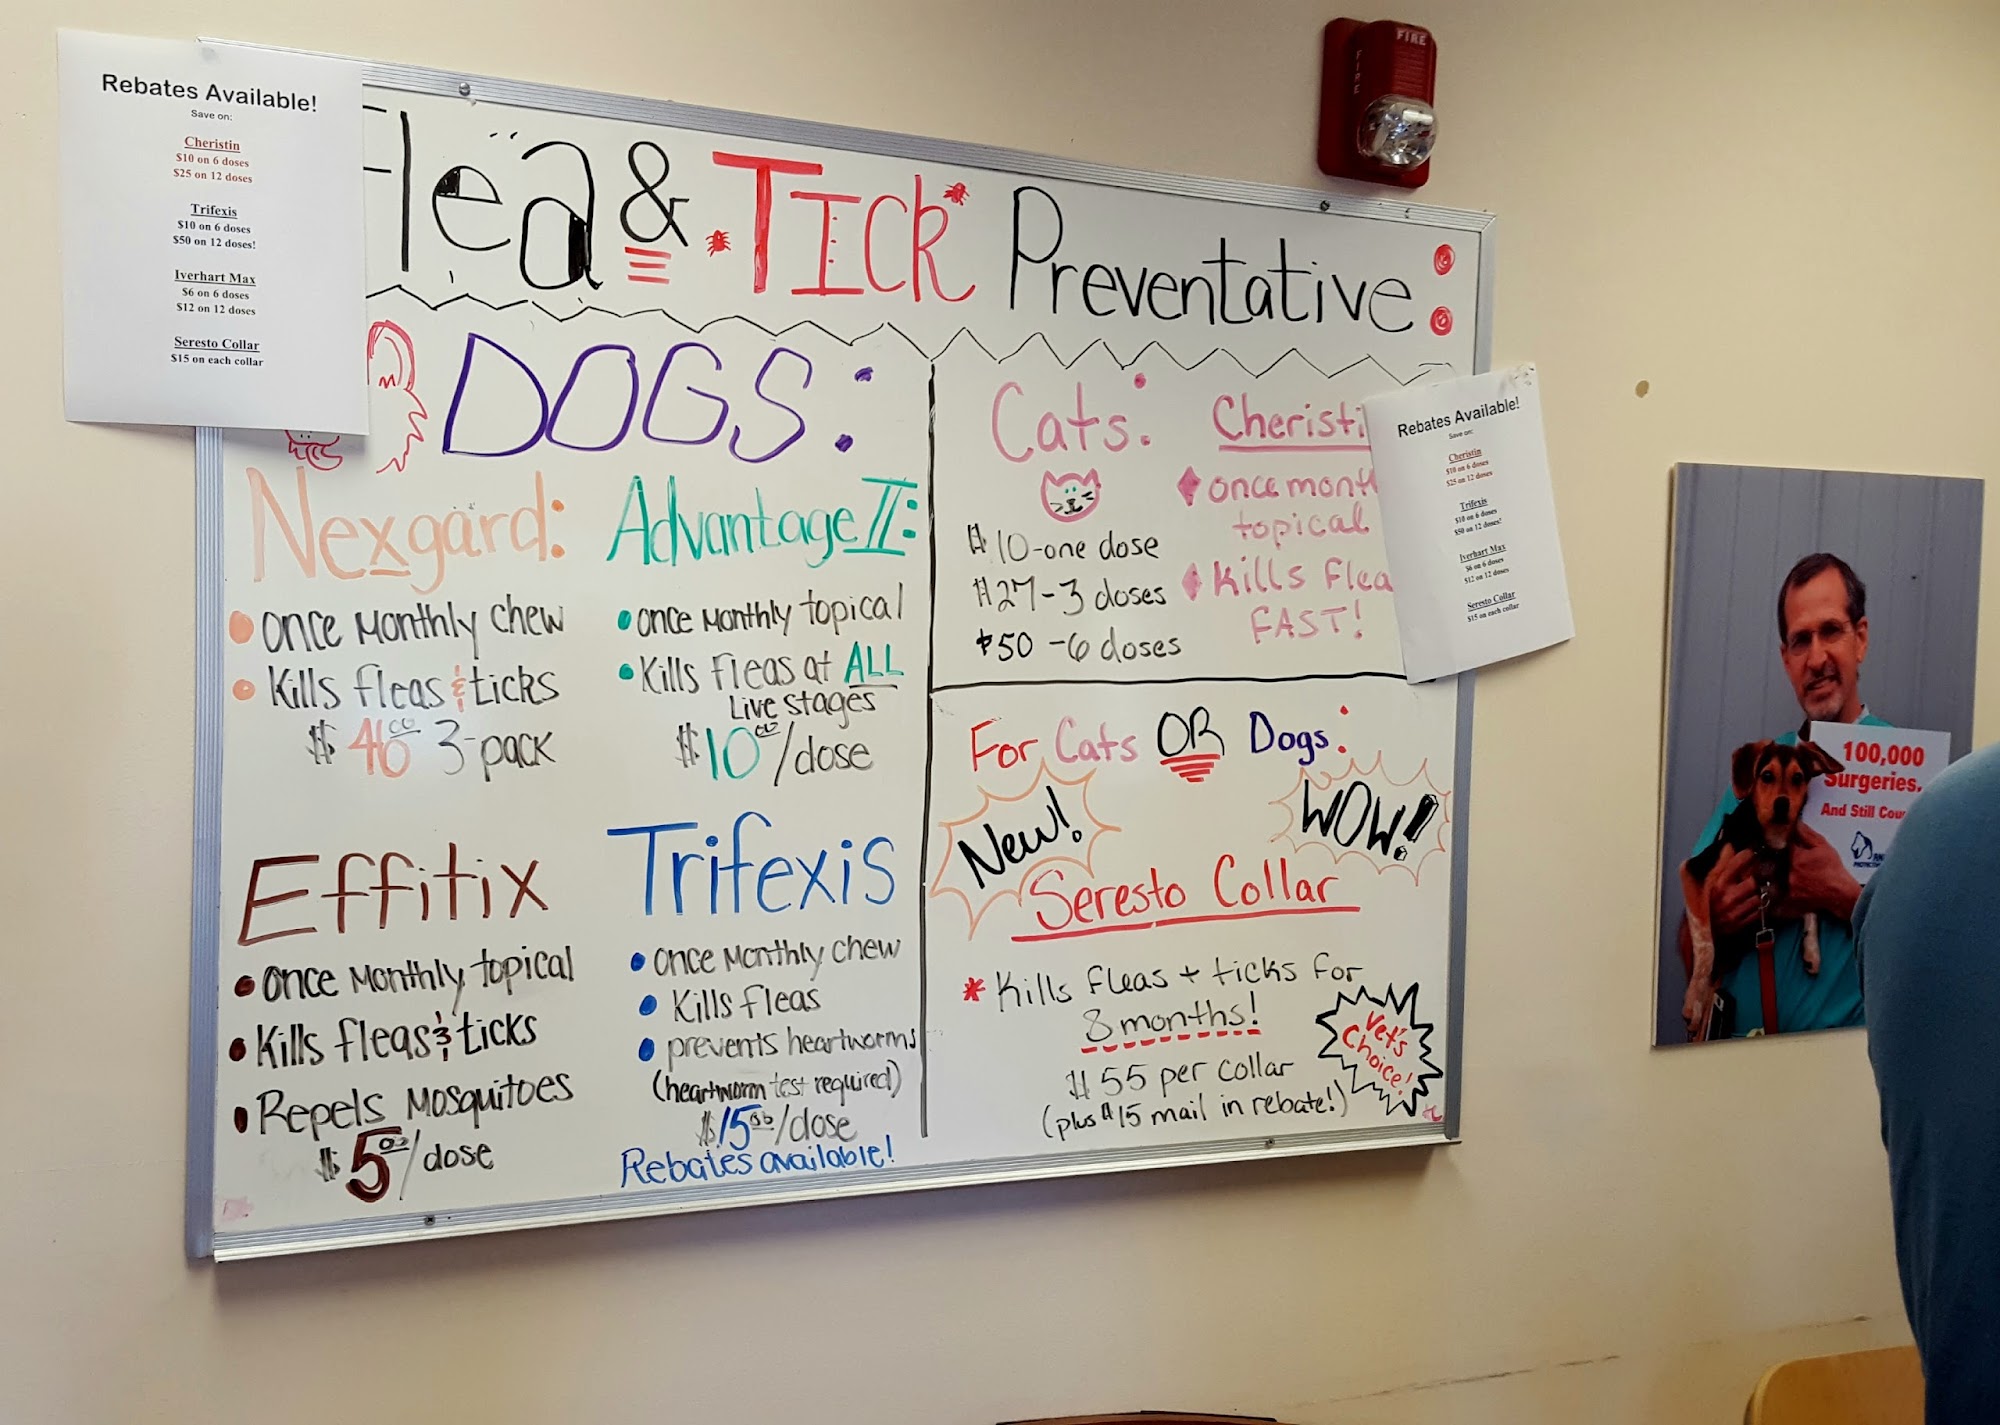 Rebates Available!
Save on:
Cheristin
$10 on 6 doses
$25 on 12 doses
Trifexis
$10 on 6 doses
$50 on 12 doses!
Iverhart Max
$6 on 6 doses
$12 on 12 doses
Seresto Collar
$15 on each collar
Flea & TICK Preventative:
DOGS:
Nexgard:
once monthly chew
Kills fleas & ticks
$46.00 3-pack
Advantage II:
once monthly topical
Kills fleas at ALL
Live stages
$10.00/dose
Effitix
once monthly topical
Kills fleas & ticks
Repels Mosquitoes
$5.00/dose
Trifexis
once monthly chew
Kills fleas
prevents heartworms
(heartworm test required)
/dose
Rebates available!
Cats:
$10-one dose
$27-3 doses
$50-6 doses
Cheristi
once mont
topical
Kills Flea
FAST!
For Cats OR Dogs:
New!
WOW!
Seresto Collar
* Kills Fleas + ticks for
8 months!
$55 per collar
(plus $15 mail in rebate!)
Vet's
Choice!
Rebates Available!
Save on:
Cheristin
$10 on 6 doses
$25 on 12 doses
Trifexis
$10 on 6 doses
$50 on 12 doses!
Iverhart Max
$6 on 6 doses
$12 on 12 doses
Seresto Collar
$15 on each collar
FIRE
FIRE
100,000
Surgeries.
And Still Cou